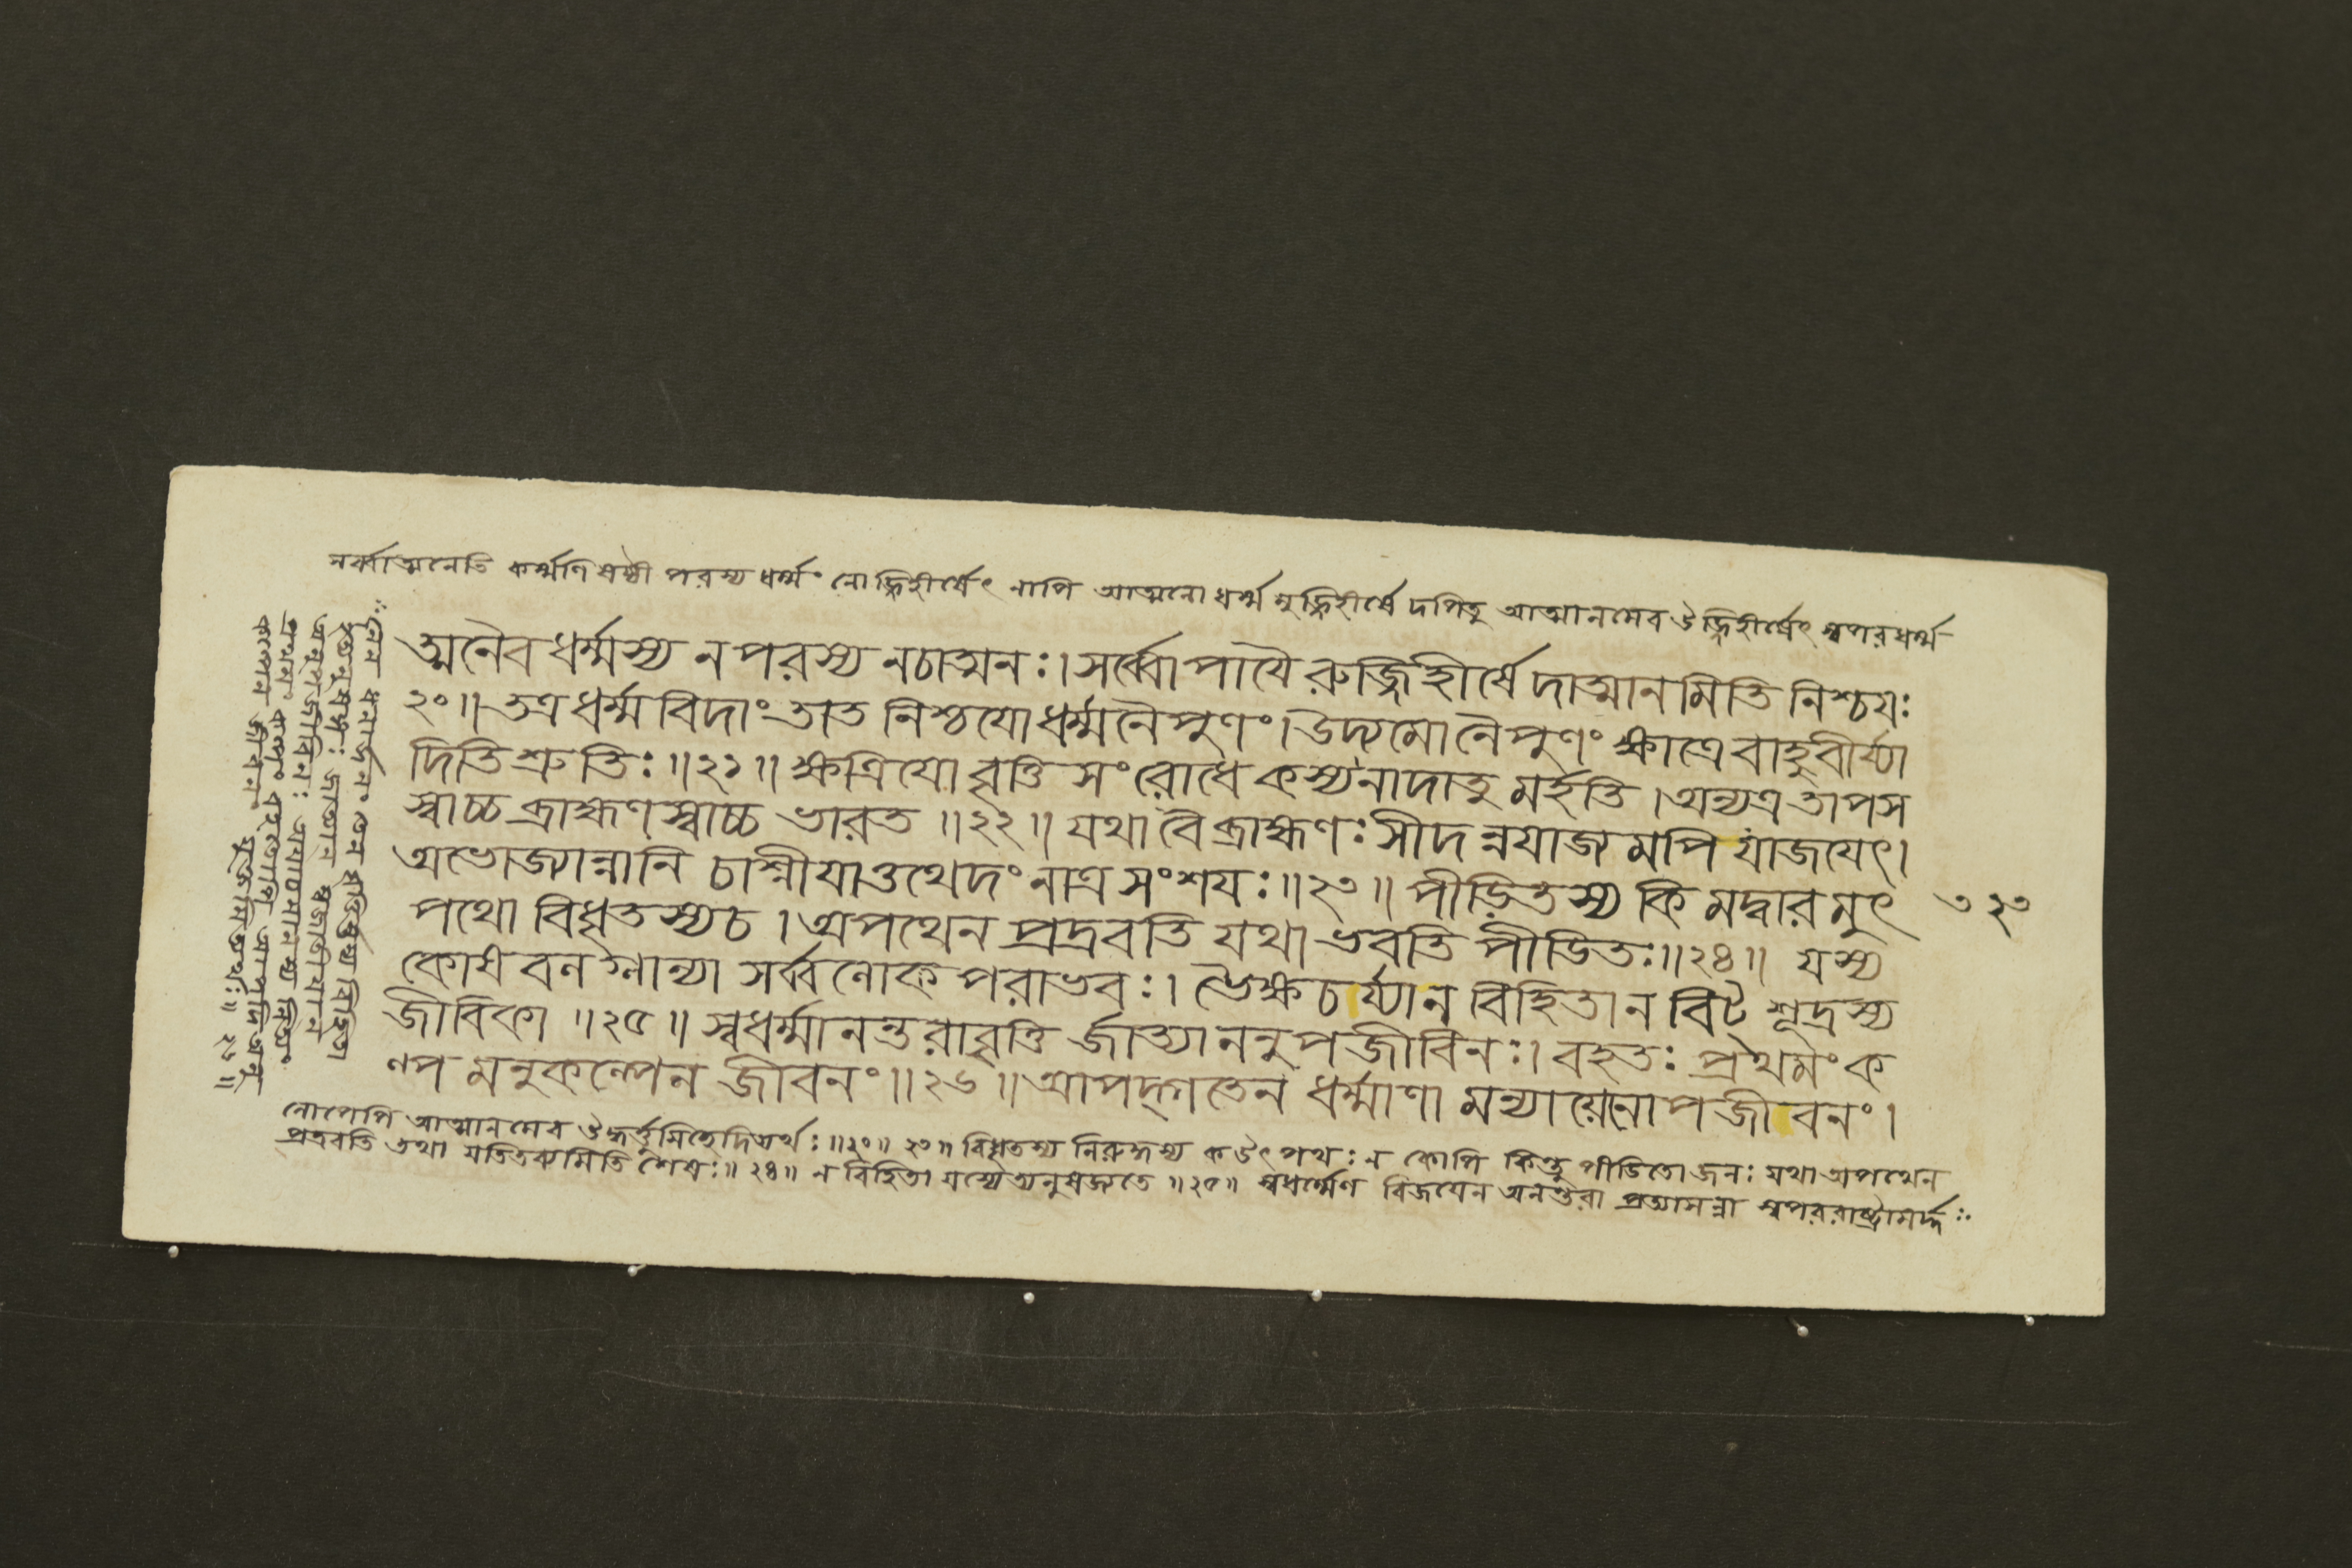 সর্ব্বাত্মনেতি কর্ম্মণি ষষ্ঠী পরস্য ধর্ম্মং নোজ্জিহীর্ষেৎ নাপি আত্মনো ধর্ম্ম মুজ্জিহীর্ষে দপিতু আত্মানমেব উজ্জিহীর্ষেৎ স্বপরধর্ম্ম
ত্মনৈব ধর্ম্মস্য ন পরস্য নচাত্মনঃ। সর্ব্বোপাযৈ রুজ্জিহীর্ষে দাত্মান মিতি নিশ্চযঃ
২০॥ তত্র ধর্ম্ম বিদাং তাত নিশ্চযো ধর্ম্মনৈপুণং। উদ্যমো নৈপুণং ক্ষাত্রে বাহুবীর্য্যা
দিতি শ্রুতিঃ॥২১॥ ক্ষত্রিযো বৃত্তি সংরোধে কস্য নাদাতু মর্হতি। অন্যত্র তাপস
স্বাচ্চ ব্রাহ্মণস্বাচ্চ ভারত॥২২॥ যথা বৈ ব্রাহ্মণঃ সীদ ন্নযাজ্য মপি যাজযেৎ।
অভোজ্যান্নানি চাশ্নীযাত্তথেদং নাত্র সংশযঃ॥২৩॥ পীড়িতস্য কি মদ্বার মুৎ
৩২৩
পথো বিধৃতস্য চ। অপথেন প্রদ্রবতি যথা ভবতি পীডিতঃ॥২৪॥ যস্য
কোষ বল গ্লান্যা সর্ব্ব লোক পরাভবঃ। ভৈক্ষ চর্য্যা ন বিহিতা ন বিট্ শূদ্রস্য
জীবিকা॥২৫॥ স্বধর্ম্মানন্তরা বৃত্তি র্জাত্যা ননুপজীবিনঃ। বহতঃ প্রথমং ক
ল্প মনুকল্পেন জীবনং॥২৬॥ আপদ্গতেন ধর্ম্মাণা মন্যাযেনোপজীবনং।
লোপেপি আত্মানমেব উদ্ধর্ত্তুমিহেদিত্যর্থঃ॥২০॥ ২৩॥ বিধৃতস্য নিরুদ্ধস্য ক উৎপথঃ ন কোপি কিন্তু পীডিতো জনঃ যথা অপথেন
প্রদ্রবতি তথা মতিতব্যমিতি শেষঃ॥২৪॥ ন বিহিতা যস্যেত্যনুষজ্যতে॥২৫॥ স্বধর্ম্মেণ বিজযেন অনন্তরা প্রত্যাসন্না স্বপররাষ্ট্রামর্দ্দ
নেন ধনার্জ্জনং
অনুপজীবিনঃ অযাচমানস্য
প্রথমং কল্পং
কল্পেন জীবনং যুক্তমিত্যর্থঃ॥২৬॥